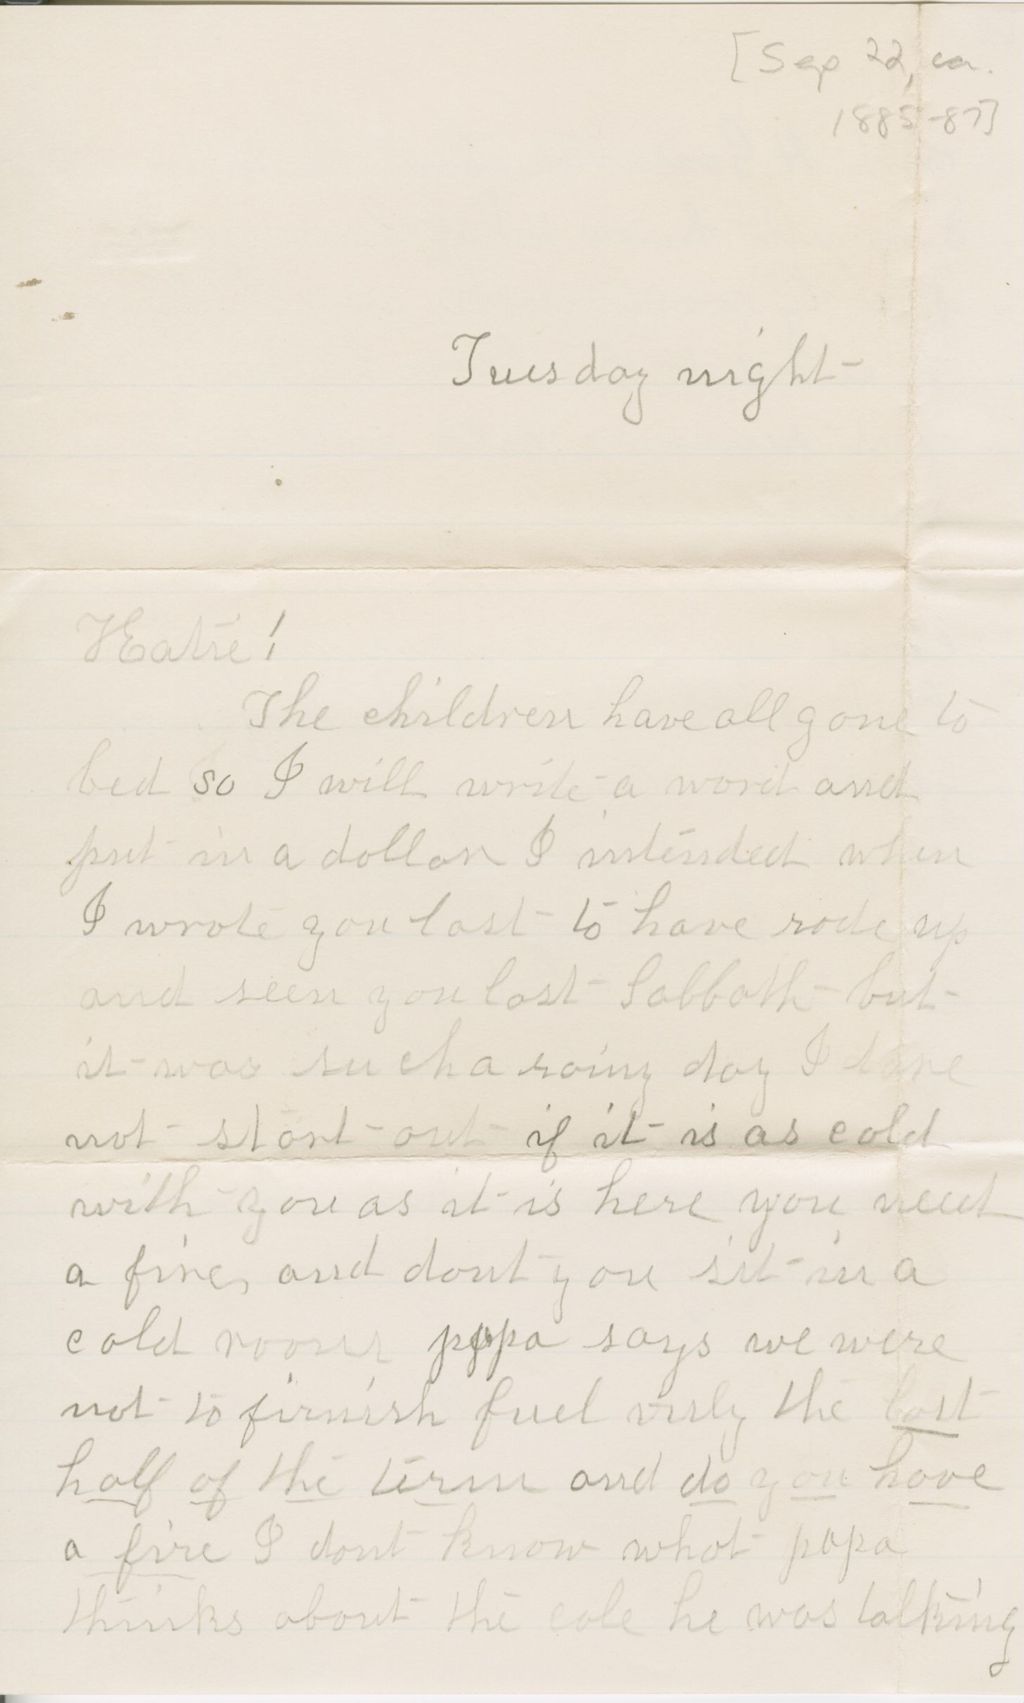 [Sep 22, ca.
1885-87]
Tuesday night
Hatie!
The children have all gone to
bed so I will write a word and
put in a dollar I intended when
I wrote you last to have rode up
and seen you last Sabbath but
it was such a rainy day I dare
not start out if it is as cold
with you as it is here you need
a fire, and dont you sit in a
cold room papa says we were
not to firnish fuel only the last
half of the term and do you have
a fire I dont know what papa
thinks about the cole he was talking